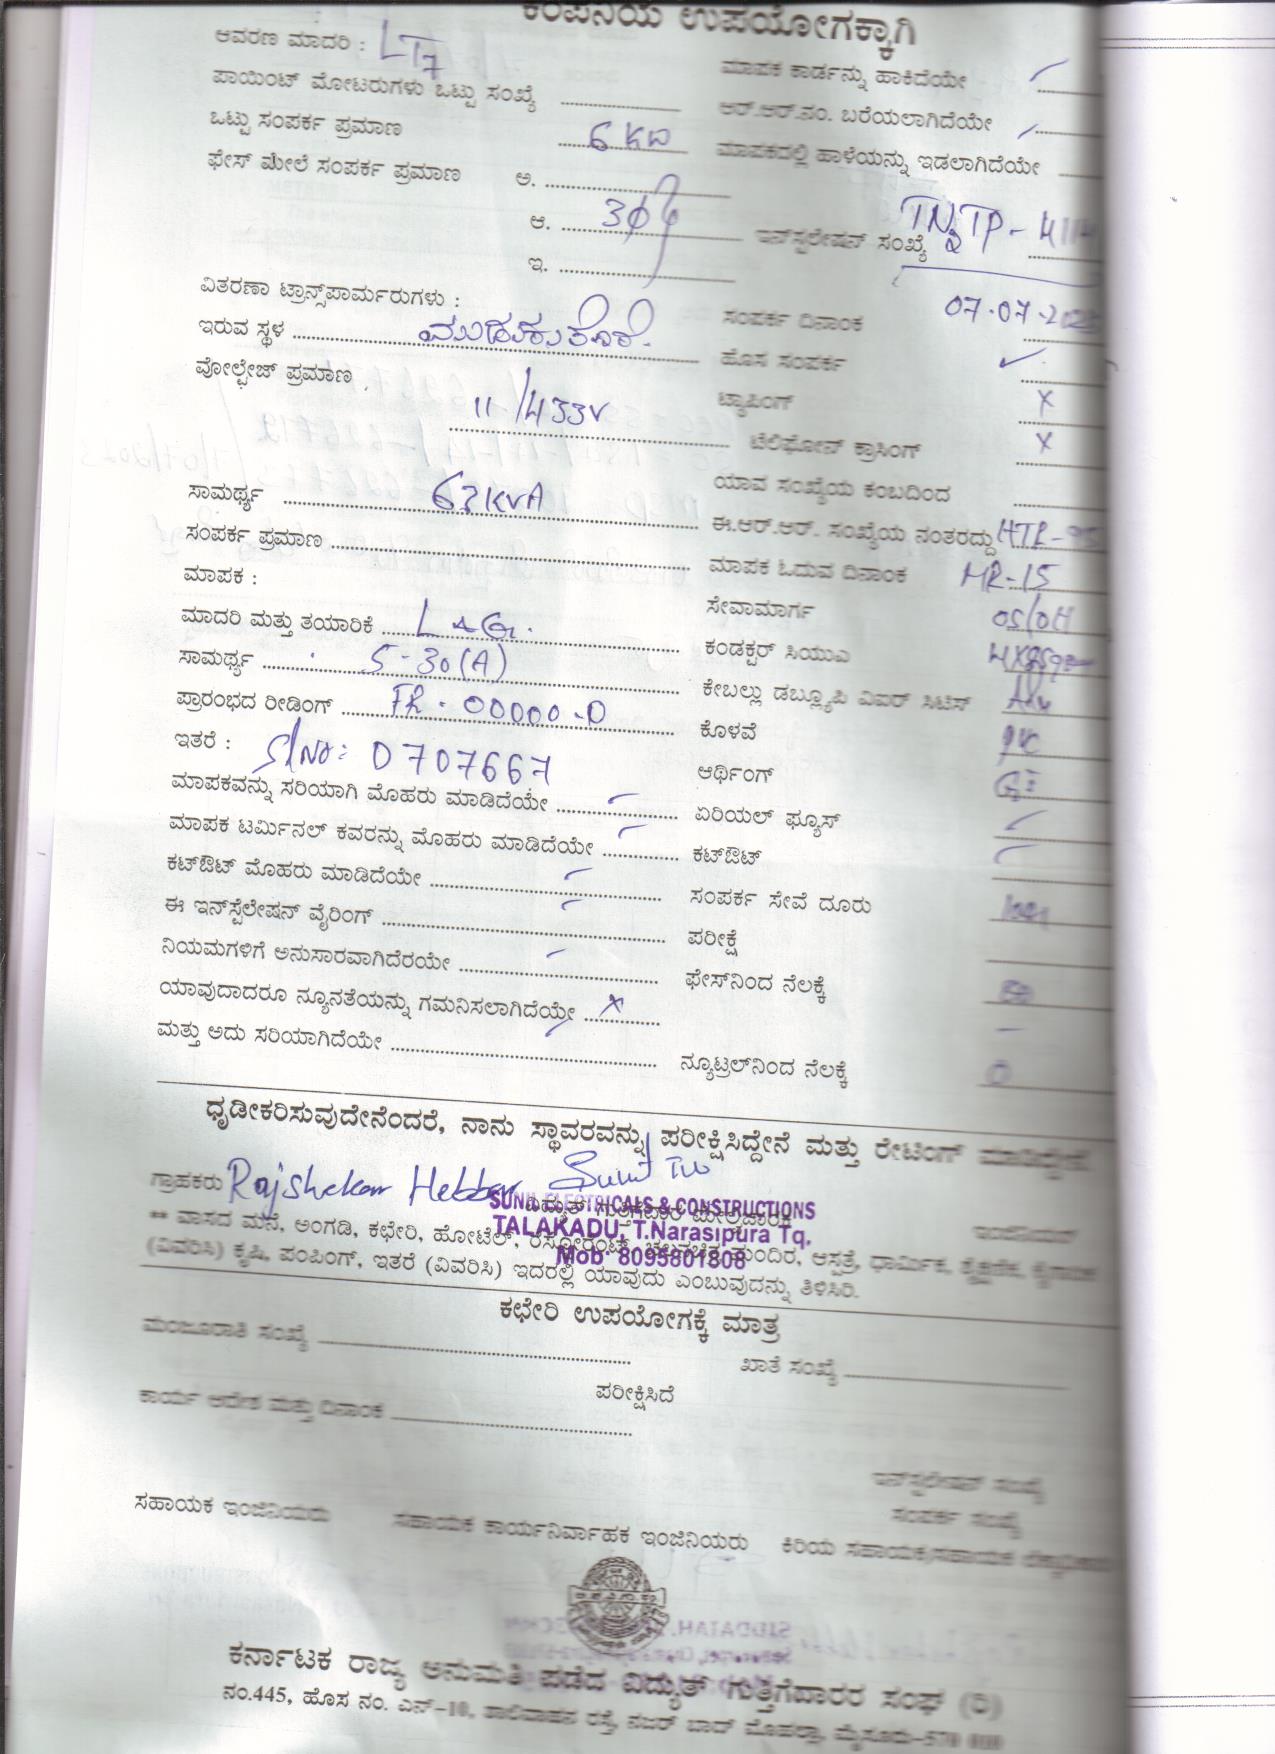 ಕಂಪನಿಯ ಉಪಯೋಗಕ್ಕಾಗಿ
ಆವರಣ ಮಾದರಿ : LT7
ಪಾಯಿಂಟ್ ಮೋಟರುಗಳು ಒಟ್ಟು ಸಂಖ್ಯೆ
ಒಟ್ಟು ಸಂಪರ್ಕ ಪ್ರಮಾಣ 6 KW
ಫೇಸ್ ಮೇಲೆ ಸಂಪರ್ಕ ಪ್ರಮಾಣ ಅ.
ಆ. 3ϕ
ಇ.
ವಿತರಣಾ ಟ್ರಾನ್ಸ್‌ಪಾರ್ಮರುಗಳು :
ಇರುವ ಸ್ಥಳ ಮುಡುಕುತೊರೆ
ವೋಲ್ಟೇಜ್ ಪ್ರಮಾಣ 11/433V
ಸಾಮರ್ಥ್ಯ 63KVA
ಸಂಪರ್ಕ ಪ್ರಮಾಣ
ಮಾಪಕ :
ಮಾದರಿ ಮತ್ತು ತಯಾರಿಕೆ L&G.
ಸಾಮರ್ಥ್ಯ 5-30(A)
ಪ್ರಾರಂಭದ ರೀಡಿಂಗ್ FR. 00000-0
ಇತರೆ : S/No: 0707667
ಮಾಪಕವನ್ನು ಸರಿಯಾಗಿ ಮೊಹರು ಮಾಡಿದೆಯೇ
ಮಾಪಕ ಟರ್ಮಿನಲ್ ಕವರನ್ನು ಮೊಹರು ಮಾಡಿದೆಯೇ
ಕಟ್‌ಔಟ್ ಮೊಹರು ಮಾಡಿದೆಯೇ
ಈ ಇನ್‌ಸ್ಪೆಲೇಷನ್ ವೈರಿಂಗ್
ನಿಯಮಗಳಿಗೆ ಅನುಸಾರವಾಗಿದೆರಯೇ
ಯಾವುದಾದರೂ ನ್ಯೂನತೆಯನ್ನು ಗಮನಿಸಲಾಗಿದೆಯೇ x
ಮತ್ತು ಅದು ಸರಿಯಾಗಿದೆಯೇ
ಮಾಪಕ ಕಾರ್ಡನ್ನು ಹಾಕಿದೆಯೇ
ಆರ್.ಆರ್.ನಂ. ಬರೆಯಲಾಗಿದೆಯೇ
ಮಾಪಕದಲ್ಲಿ ಹಾಳೆಯನ್ನು ಇಡಲಾಗಿದೆಯೇ
ಇನ್‌ಸ್ಪಲೇಷನ್ ಸಂಖ್ಯೆ
ಸಂಪರ್ಕ ದಿನಾಂಕ 07-07-
ಹೊಸ ಸಂಪರ್ಕ ✓
ಟ್ಯಾಪಿಂಗ್ x
ಟೆಲಿಫೋನ್ ಕ್ರಾಸಿಂಗ್ x
ಯಾವ ಸಂಖ್ಯೆಯ ಕಂಬದಿಂದ
ಈ.ಆರ್.ಆರ್. ಸಂಖ್ಯೆಯ ನಂತರದ್ದು
ಮಾಪಕ ಓದುವ ದಿನಾಂಕ MR-15
ಸೇವಾಮಾರ್ಗ
ಕಂಡಕ್ಟರ್ ಸಿಯುಎ
ಕೇಬಲ್ಲು ಡಬ್ಲ್ಯೂಪಿ ಎಐರ್ ಸಿಟಿಸ್
ಕೊಳವೆ
ಆರ್ಥಿಂಗ್
ಏರಿಯಲ್ ಫ್ಯೂಸ್
ಕಟ್‌ಔಟ್
ಸಂಪರ್ಕ ಸೇವೆ ದೂರು
ಪರೀಕ್ಷೆ
ಫೇಸ್‌ನಿಂದ ನೆಲಕ್ಕೆ
ನ್ಯೂಟ್ರಲ್‌ನಿಂದ ನೆಲಕ್ಕೆ 0
ಧೃಡೀಕರಿಸುವುದೇನೆಂದರೆ, ನಾನು ಸ್ಥಾವರವನ್ನು ಪರೀಕ್ಷಿಸಿದ್ದೇನೆ ಮತ್ತು ರೇಟಿಂಗ್ ಮಾಡಿದ್ದೇನೆ.
ಗ್ರಾಹಕರು Rajshekar Hebbar
SUNIL ELECTRICALS & CONSTRUCTIONS
TALAKADU, T.Narasipura Tq,
Mob 8095801808
** ವಾಸದ ಮನೆ, ಅಂಗಡಿ, ಕಛೇರಿ, ಹೋಟೆಲ್, ರೆಸ್ಟೋರೆಂಟ್, ಮಂದಿರ, ಆಸ್ಪತ್ರೆ, ಧಾರ್ಮಿಕ, ಶೈಕ್ಷಣಿಕ,
(ವಿವರಿಸಿ) ಕೃಷಿ, ಪಂಪಿಂಗ್, ಇತರೆ (ವಿವರಿಸಿ) ಇದರಲ್ಲಿ ಯಾವುದು ಎಂಬುವುದನ್ನು ತಿಳಿಸಿರಿ.
ಕಛೇರಿ ಉಪಯೋಗಕ್ಕೆ ಮಾತ್ರ
ಮಂಜೂರಾತಿ ಸಂಖ್ಯೆ
ಖಾತೆ ಸಂಖ್ಯೆ
ಪರೀಕ್ಷಿಸಿದೆ
ಕಾರ್ಯ ಆದೇಶ ಮತ್ತು ದಿನಾಂಕ
ಇನ್‌ಸ್ಪಲೇಷನ್ ಸಂಖ್ಯೆ
ಸಂಪರ್ಕ ಸಂಖ್ಯೆ
ಸಹಾಯಕ ಇಂಜಿನಿಯರು ಸಹಾಯಕ ಕಾರ್ಯನಿರ್ವಾಹಕ ಇಂಜಿನಿಯರು ಕಿರಿಯ ಸಹಾಯಕ/ಸಹಾಯಕ
ಕರ್ನಾಟಕ ರಾಜ್ಯ ಅನುಮತಿ ಪಡೆದ ವಿದ್ಯುತ್ ಗುತ್ತಿಗೆದಾರರ ಸಂಘ (ರಿ)
ನಂ.445, ಹೊಸ ನಂ. ಎನ್-10, ಶಾಲಿವಾಹನ ರಸ್ತೆ, ನಜರ್ ಬಾದ್ ಮೊಹಲ್ಲಾ, ಮೈಸೂರು-570